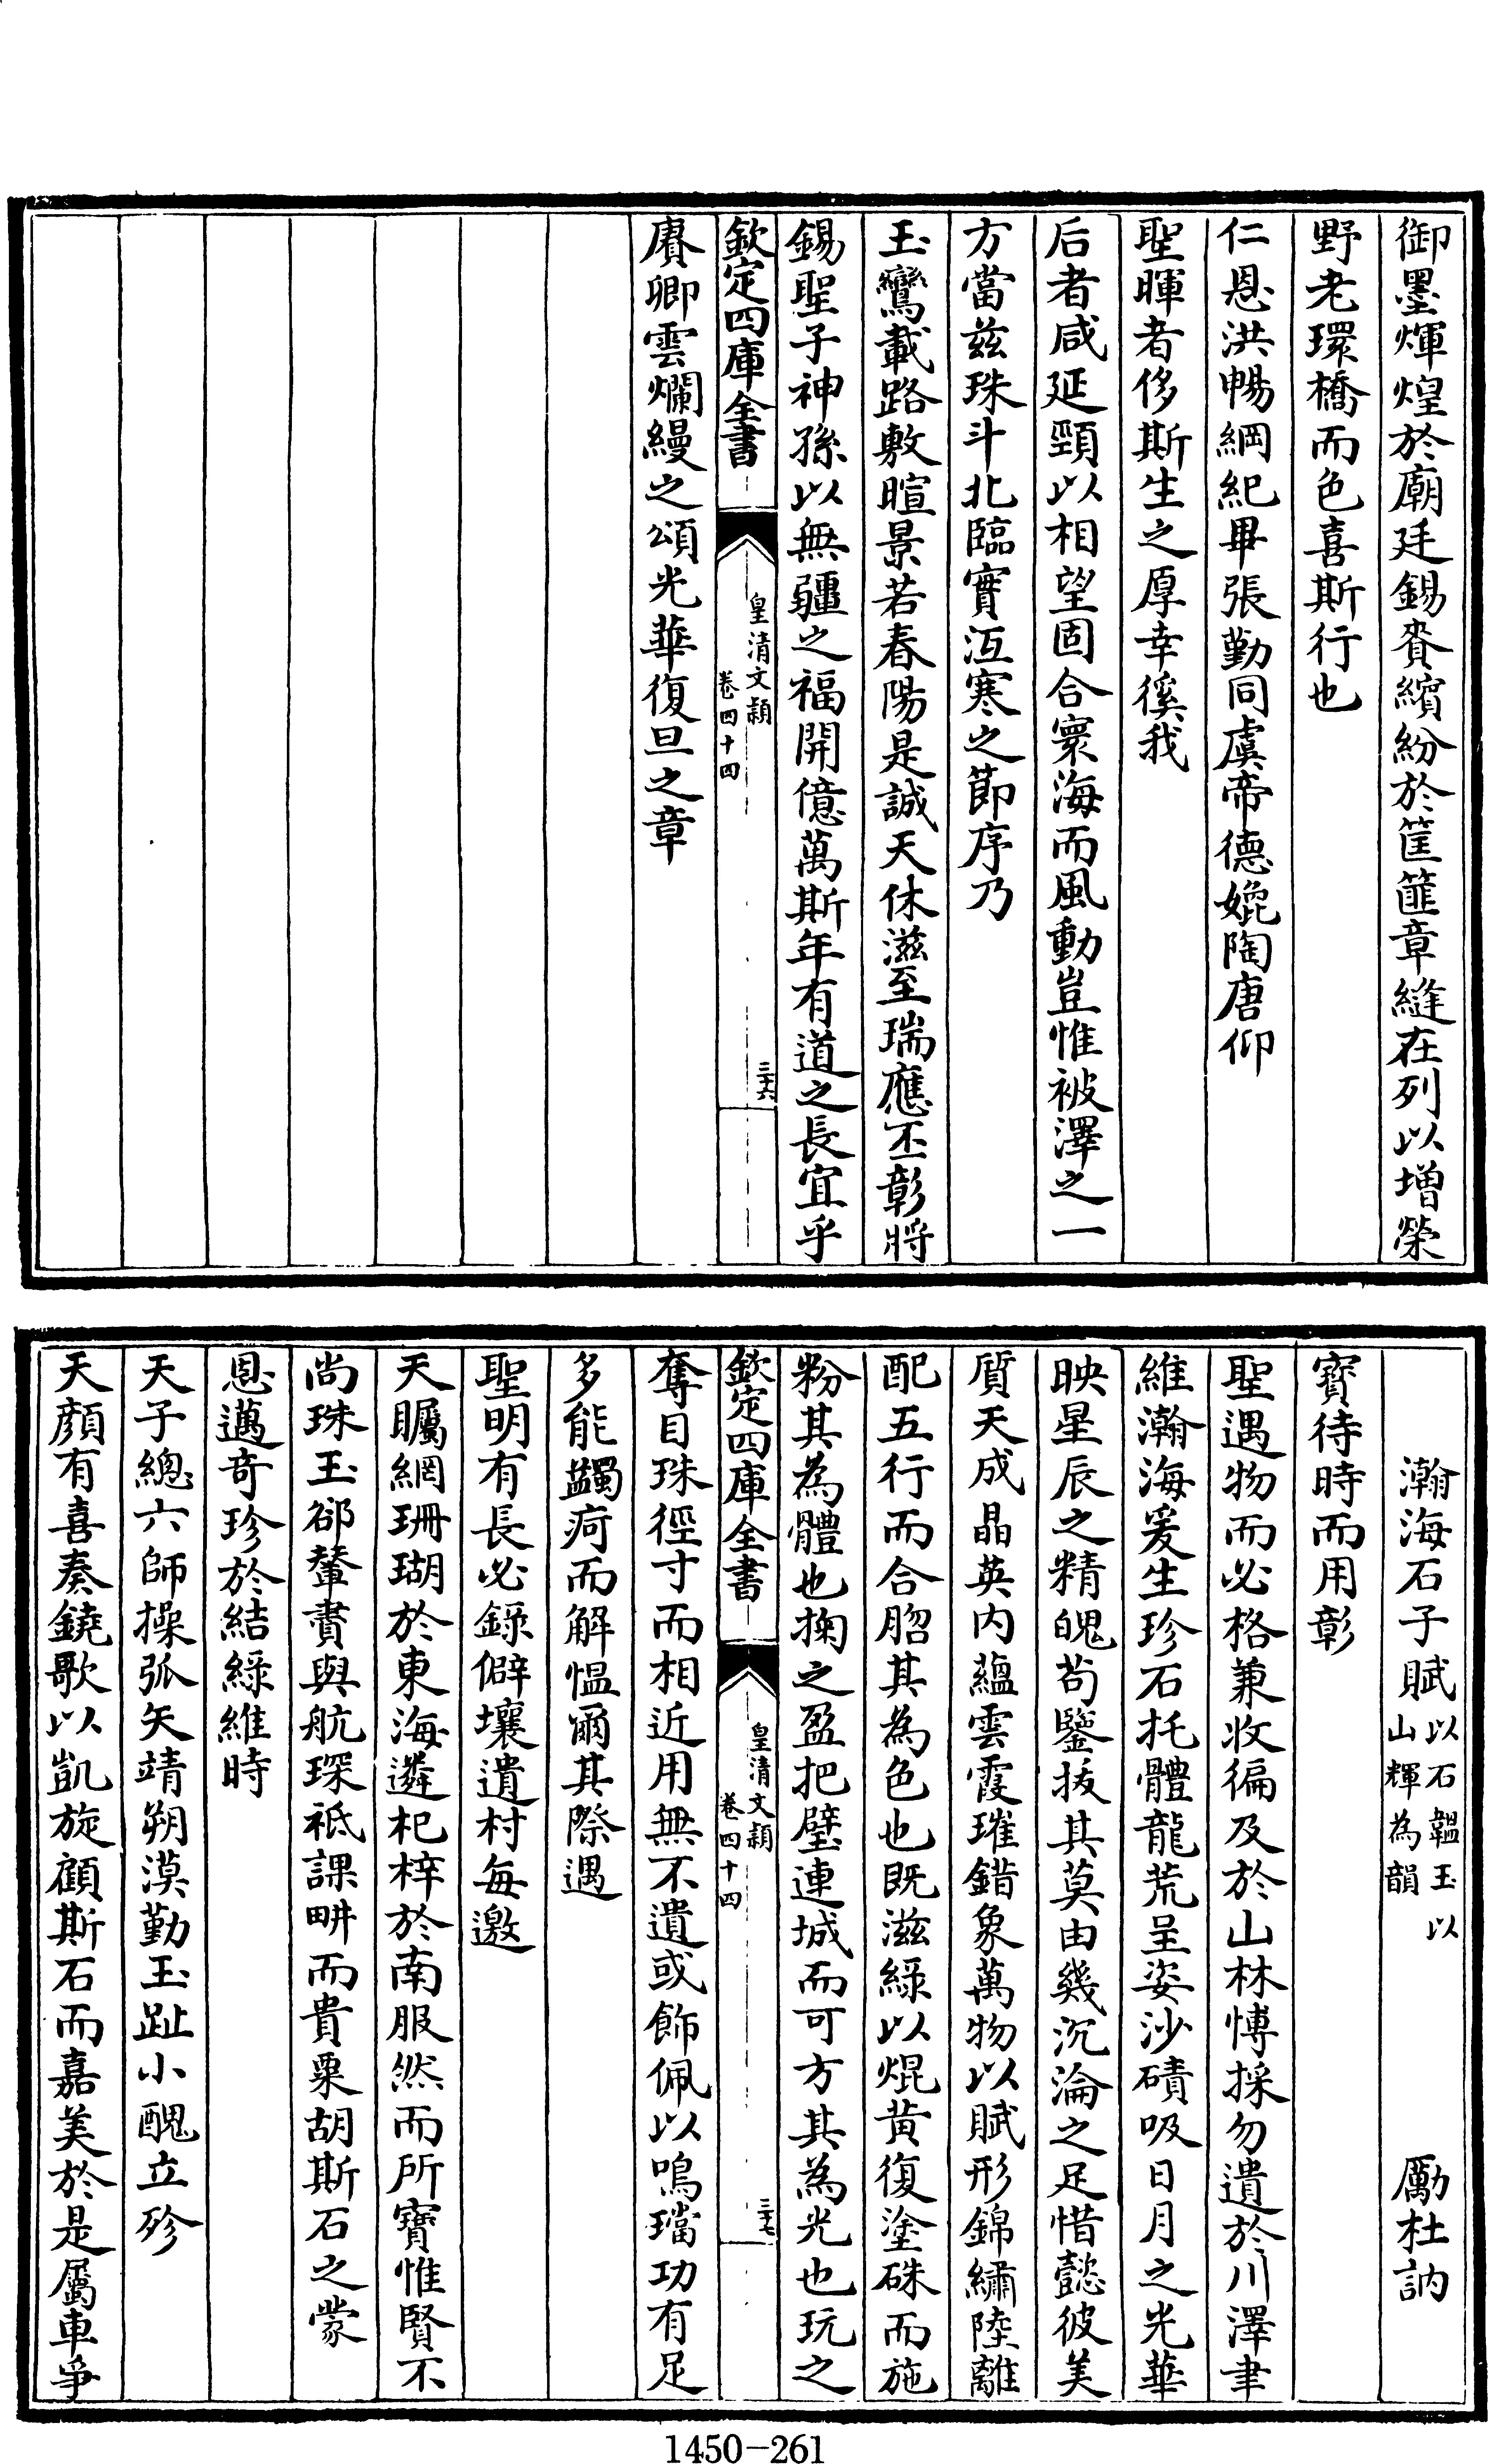 御墨煇煌於廟廷錫賚繽紛於筐篚章縫在列以增榮
野老環橋而色喜斯行也
仁恩洪暢綱紀畢張勤同虞帝德媲陶唐仰
聖暉者侈斯生之厚幸徯我
后者咸延頸以相望固合寰海而風動豈惟被澤之一
方當兹珠斗北臨實沍寒之節序乃
玉鸞載路敷暄景若春陽是誠天休滋至瑞應丕彰將
錫聖子神孫以無疆之福開億萬斯年有道之長宜乎
欽定四庫全書
皇清文穎
卷四十四
三十六
賡卿雲爛縵之頌光華復旦之章
瀚海石子賦以石韞玉以山輝為韻 勵杜訥
寶待時而用彰
聖遇物而必格兼收徧及於山林博採勿遺於川澤聿
維瀚海爰生珍石托體龍荒呈姿沙磧吸日月之光華
映星辰之精魄茍鑒拔其莫由幾沉淪之足惜懿彼美
質天成晶英内藴雲霞璀錯象萬物以賦形錦繡陸離
配五行而合脗其為色也既滋綠以焜黄復塗硃而施
粉其為體也掬之盈把壁連城而可方其為光也玩之
欽定四庫全書
皇清文穎
卷四十四
三十七
奪目珠徑寸而相近用無不遺或飾佩以鳴璫功有足
多能蠲疴而解愠爾其際遇
聖明有長必錄僻壤遺村每邀
天矚網珊瑚於東海遴杞梓於南服然而所寶惟賢不
尚珠玉卻輦賮與航琛祗課畊而貴粟胡斯石之蒙
恩邁奇珍於結綠維時
天子總六師操弧矢靖朔漠勤玉趾小醜立殄
天顔有喜奏鐃歌以凱旋顧斯石而嘉美於是屬車爭
1450-261